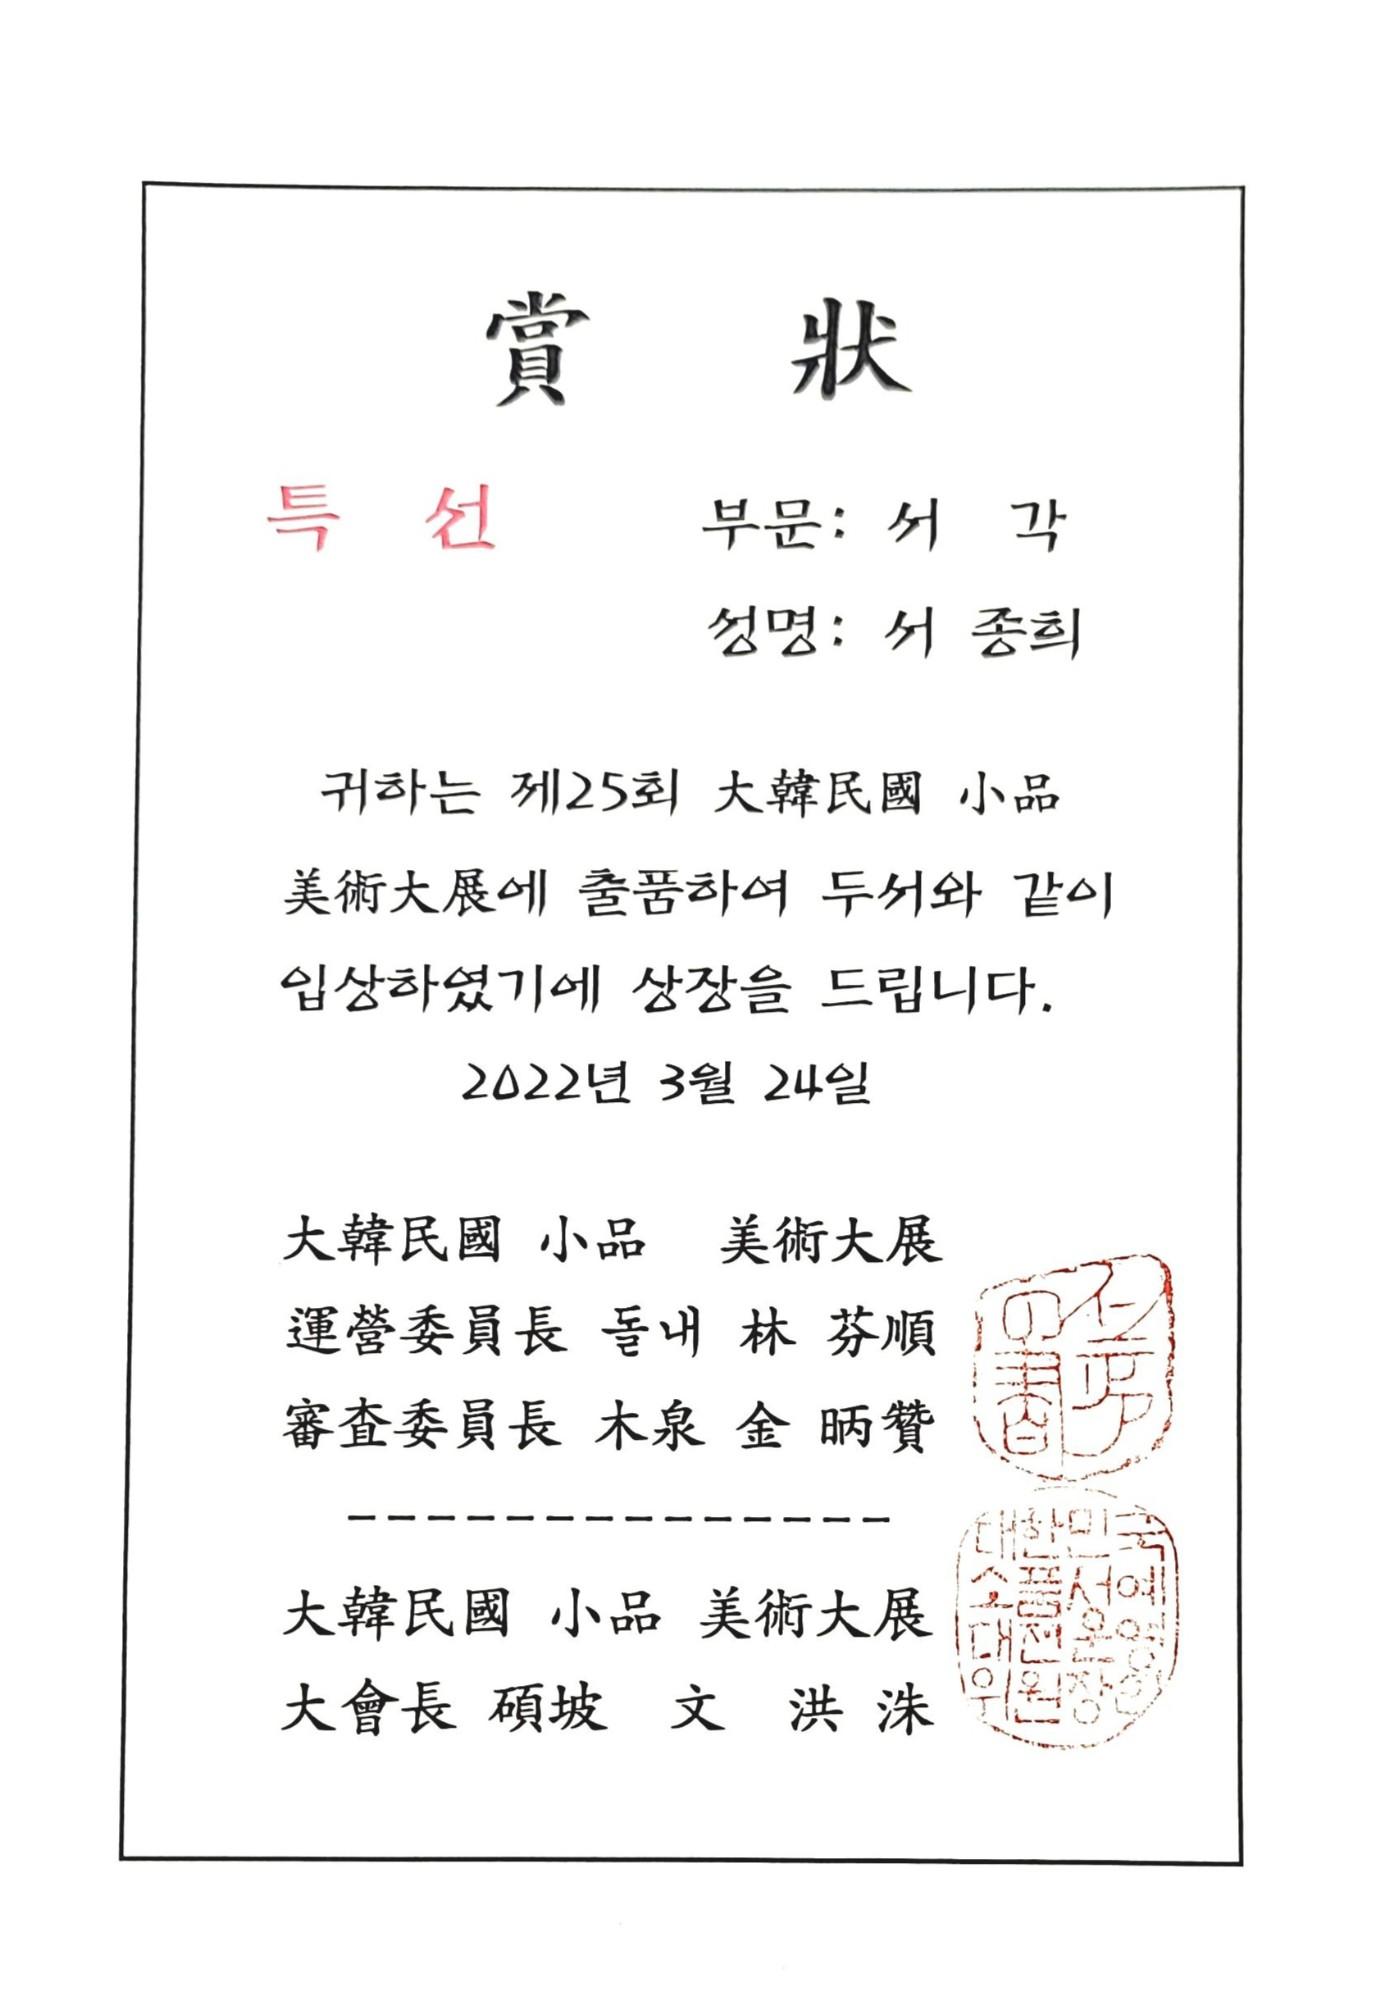 賞 狀
특 선
부문: 서 각
성명: 서 종희
귀하는 제25회 大韓民國 小品
美術大展에 출품하여 두서와 같이
입상하였기에 상장을 드립니다.
2022년 3월 24일
大韓民國 小品 美術大展
運營委員長 돌내 林 芬順
審査委員長 木泉 金 昞贊
大韓民國 小品 美術大展
大會長 碩坡 文 洪洙
대한민국
소품서예